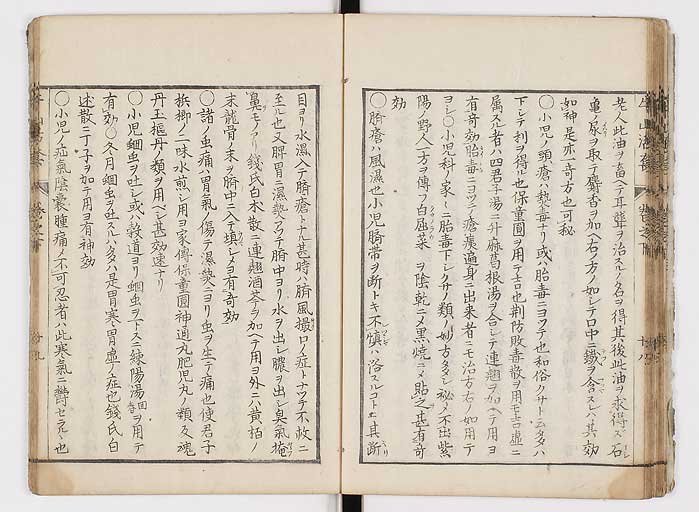 老人此油ヲ畜ヘテ耳聾ヲ治スルノ名ヲ得其後此油ヲ求得ス石
亀ノ尿ヲ取テ麝香ヲ加ヘ右ノ方ノ如シテ口中ニ鐵ヲ含スレハ其効
如神是亦一奇方也可秘
〇小児ノ頭瘡ハ熱毒ナリ或ハ胎毒ニヨツテ也和俗クサト云多ハ
下シテ利ヲ得ル也保童圓ヲ用テ吉也荊防敗毒散ヲ用モ吉虚ニ
属スル者ハ四君子湯ニ升麻葛根湯ヲ合シテ連翹ヲ加ヘテ用ヨ
有奇効胎毒ニヨツテ瘡瘍遍身ニ出来者ニモ治方右ノ如用テ
ヨシ〇小児科ノ家々ニ胎毒下シクサノ類ノ妙方多シ秘メ不出紫
陽ノ野人一方ヲ傳フ白屈菜ヲ陰乾ニメ黒焼ニメ貼之甚有奇
効
〇臍瘡ハ風濕也小児臍帯ヲ断トキ不慎ハ浴スルコト其断
目ヨリ水濕入テ臍瘡トナル甚時ハ臍風撮口ノ症トナツテ不救ニ
至ル也又脾胃ニ濕熱アツテ臍中ヨリ水ヲ出シ膿ヲ出シ臭氣掩
鼻モノアリ錢氏白朮散ニ連翹酒芩ヲ加ヘテ用ヨ外ニハ黄栢ノ
末龍骨ノ末ヲ臍中ニ入テ填シメヨ有奇効
〇諸ノ虫痛ハ胃氣ノ傷テ濕熱ニヨリ虫ヲ生テ痛也使君子
檳榔ノ二味水煎シ用ヨ家傳保童圓神過丸肥児丸ノ類及魂
丹玉樞丹ノ類ヲ用ベシ甚効速ナリ
〇小児蛔虫ヲ吐シ或ハ穀道ヨリ蛔虫ヲ下スニ錬陽湯ヲ用テ
有効〇久月蛔虫ヲ吐スルハ多ハ是胃寒シ胃虚ノ症也錢氏ノ白
朮散ニ丁子ヲ加テ用ヨ有神効
〇小児ノ疝氣陰嚢腫痛メ不可忍者ハ此寒氣ニ欝セラルヽ也